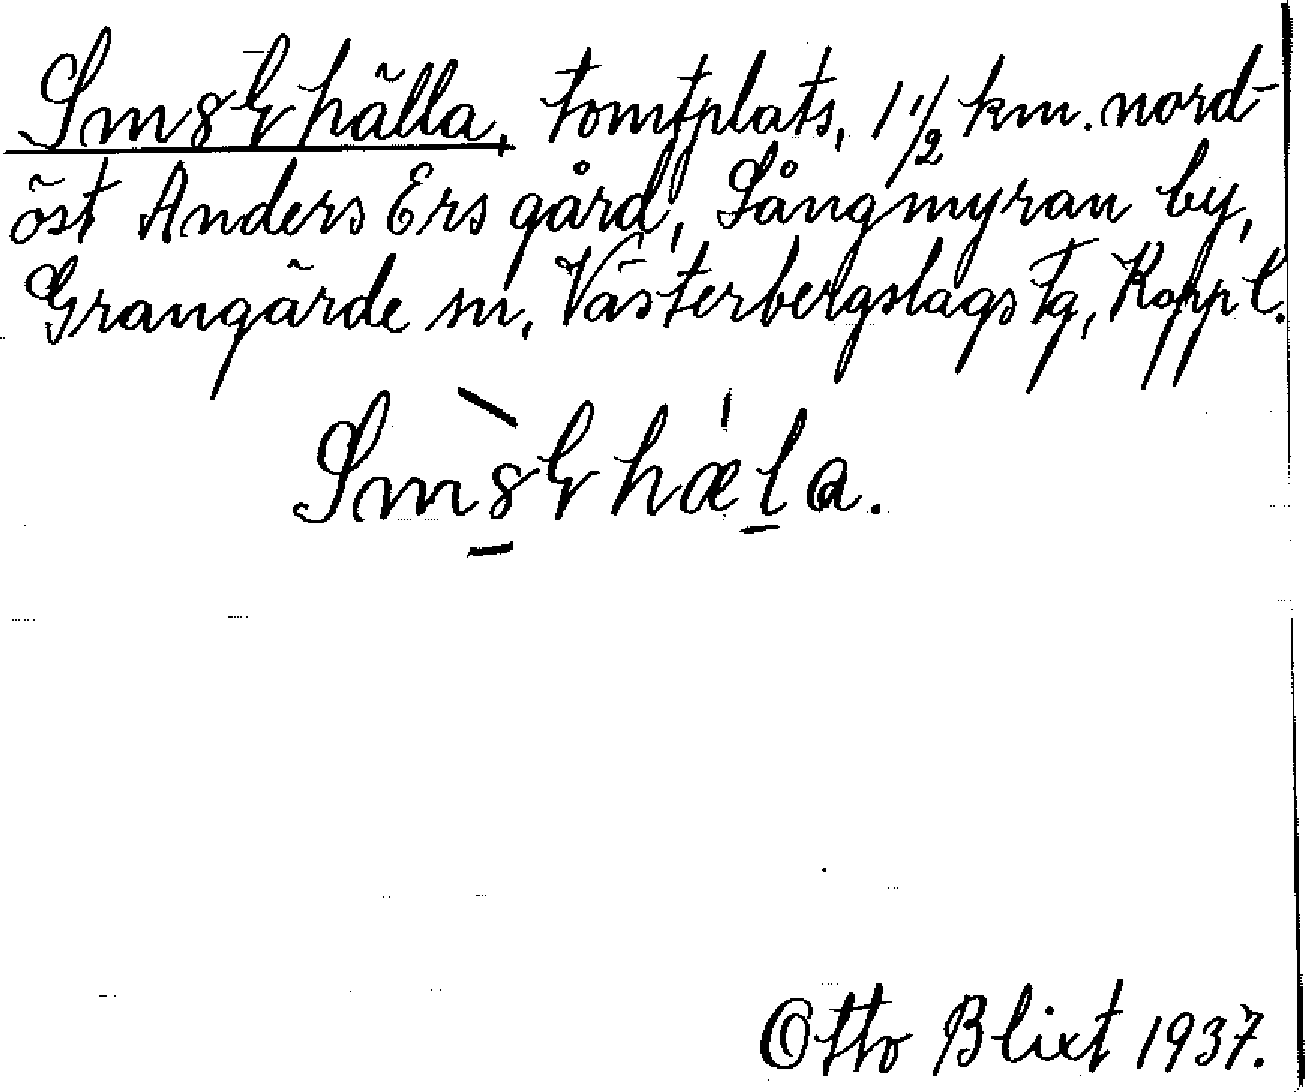 tomtplats, 1 1/2 km. nord-
öst Anders Ers gård, Långmyran by,
Grangärde sn, Västerbergslags tg, Kopp l.
Otto Blixt 1937.